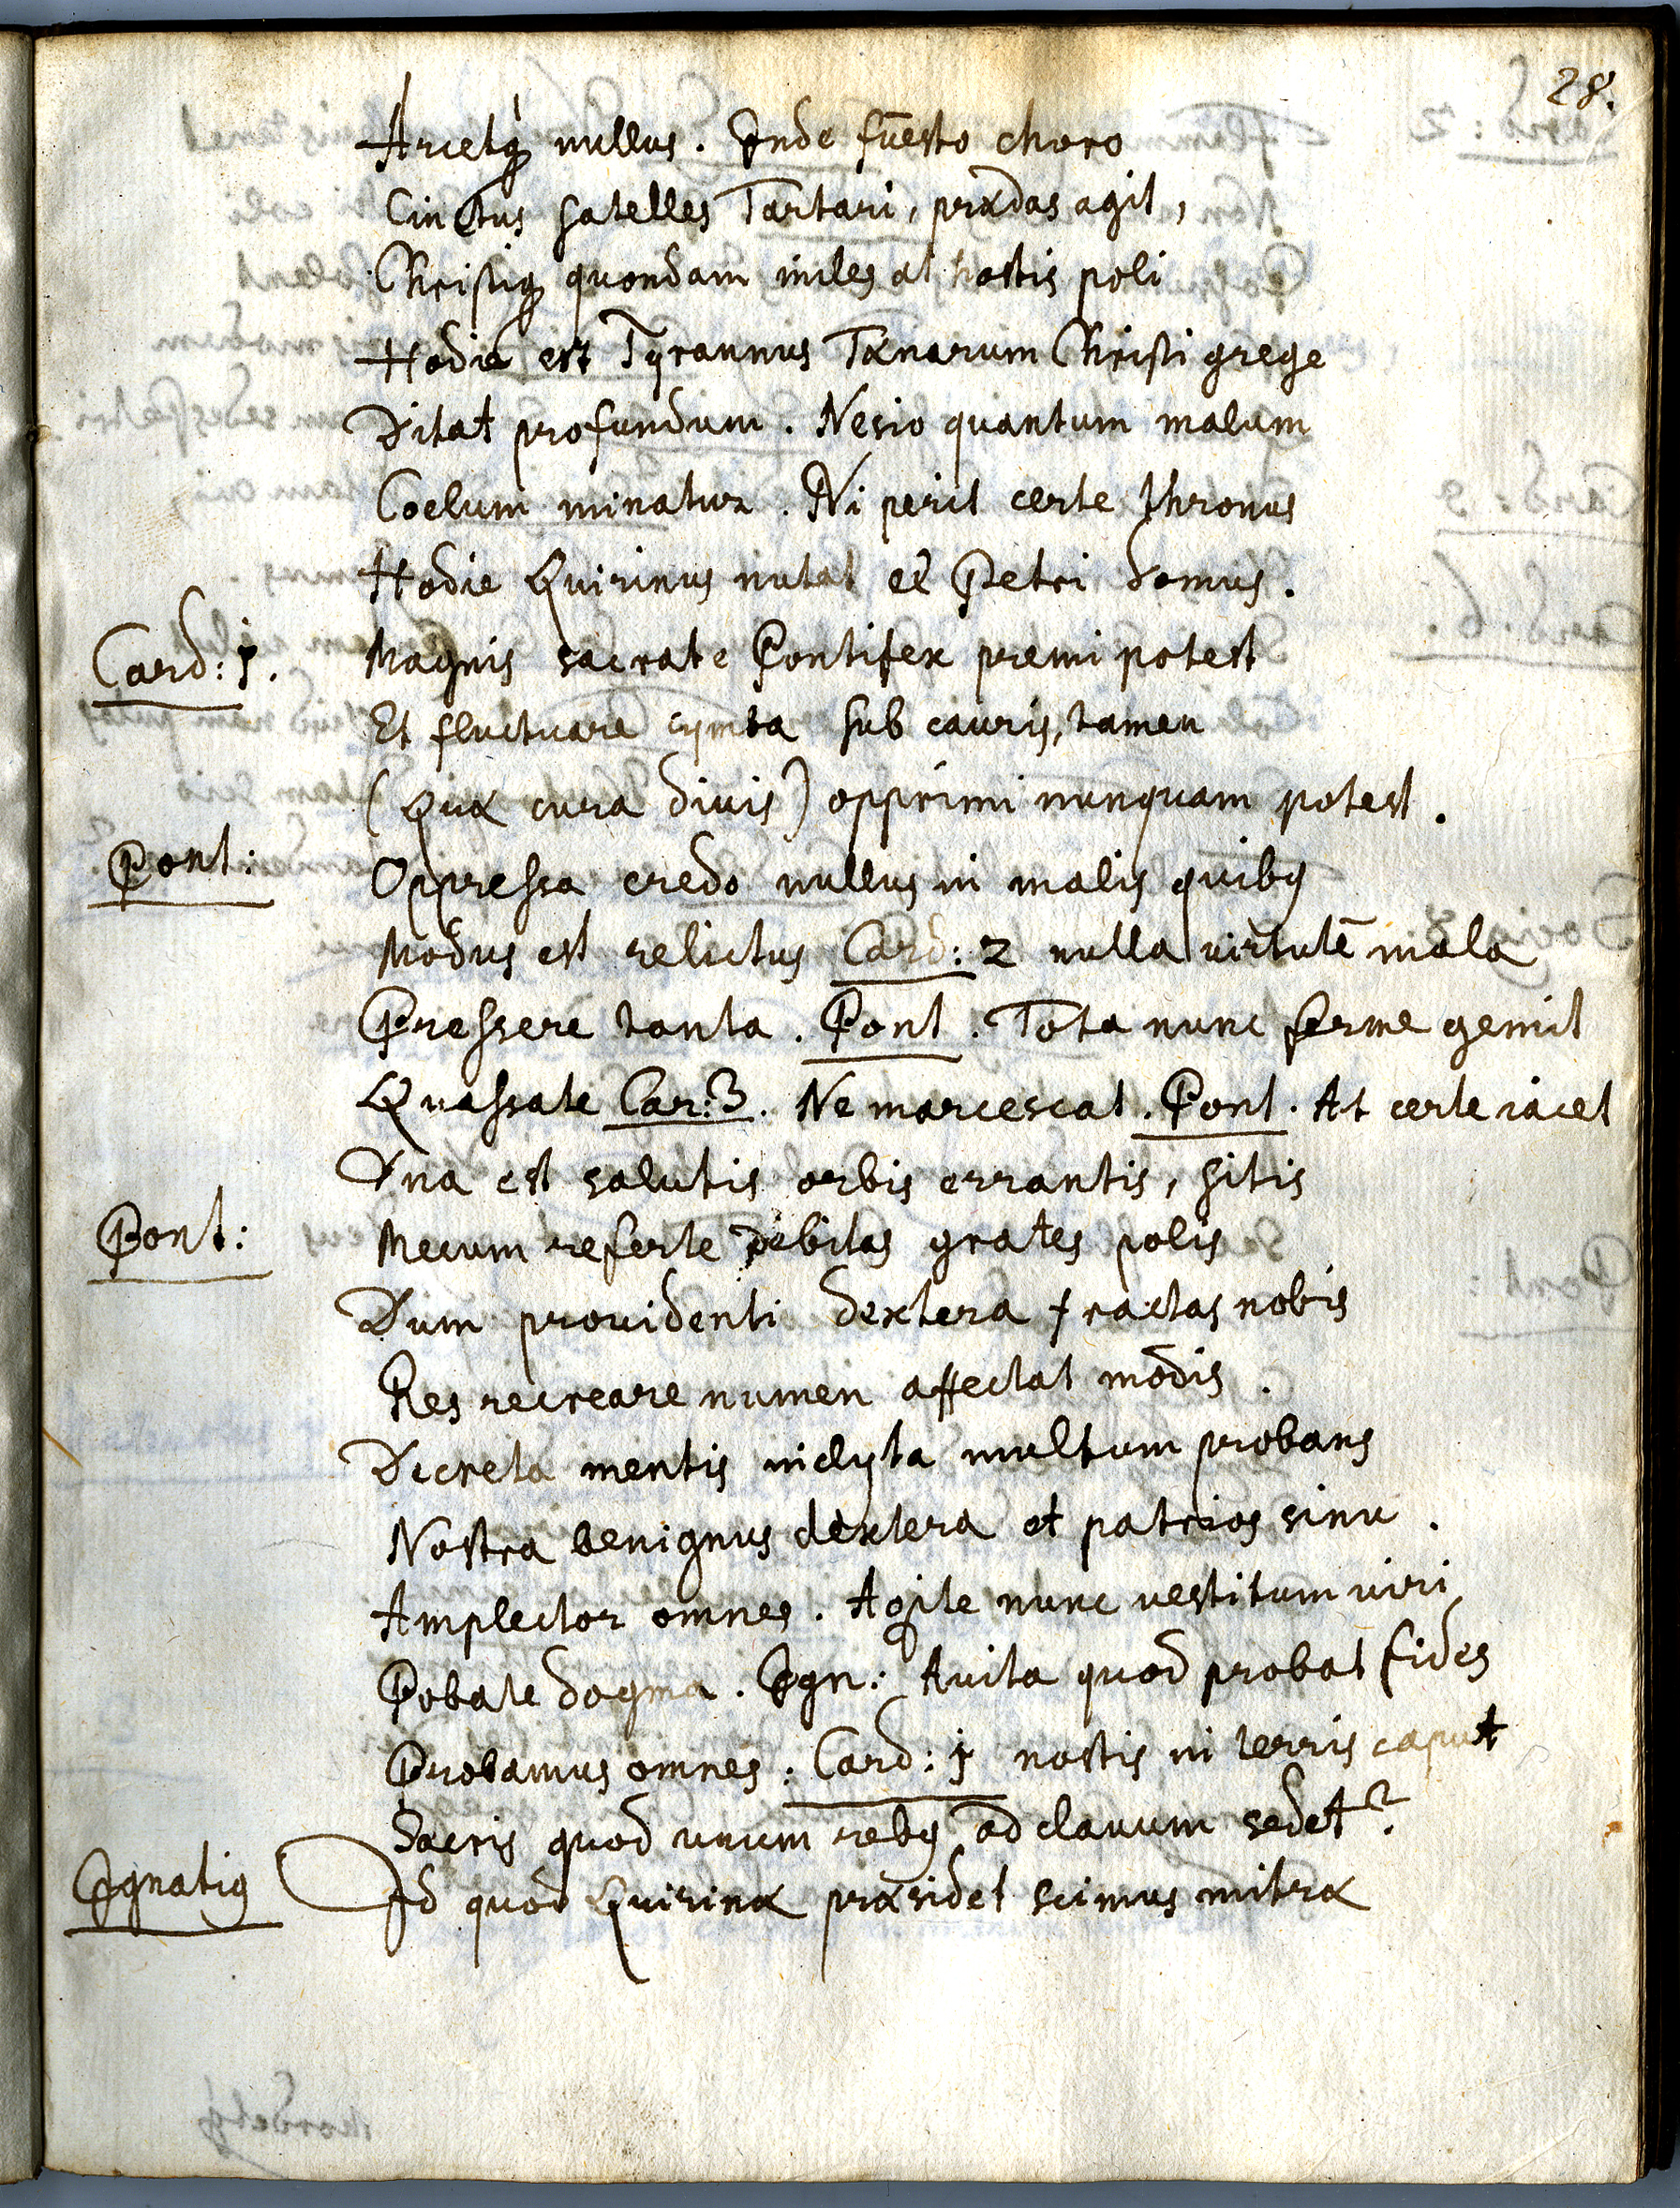 28.
Arcetq́ nullus. Inde fūesto choro
Cinctus satelles Tartari, prædas agit,
Christiq quondam miles at hostis poli
Hodie est Tyrannus Tænarum Christi grege
Ditat profundum. Nesio quantum malum
Coelum minatur. Ni perit certe thronus
Hodie Quirinus nutat et Petri domus.
Card: 1. Magnis sacrate Pontifex premi potest
Et fluctuare cymba sub cauris, tamen
(Quæ cura diuis) opprimi nunquam potest.
Pont: Oppressa credo nullus in malis quibq
Modus est relictus Card: 2 nulla virtutē mala
Pressere tanta. Pont. Tota nunc ferme gemit
Quassate Car: 3. Ne marcescat. Pont. At certe iacet
Vna est salutis orbis errantis, sitis
Pont: Mecum referte debitas grates polis
Dum prouidenti dextera fractas nobis
Res recreare numen affectat modis.
Decreta mentis inclyta multum probans
Nostra benignus dextera et patrios sinu.
Amplector omnes. Agite nunc vestitum viri
Pobate dogma. Ign: Auita quod probat fides
Probamus omnes: Card: 1 nostis in terris caput
Sacris quod unum rebq ad clauum sedet?
Ignatiq Id quod Quirinæ præsidet scimus mitræ